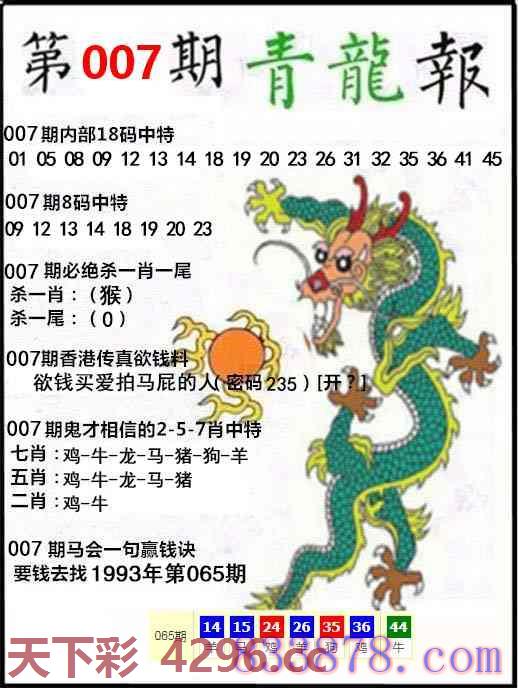 第007期青龍報
007期内部18码中特
01 05 08 09 12 13 14 18 19 20 23 26 31 32 35 36 41 45
007期8码中特
09 12 13 14 18 19 20 23
007期必绝杀一肖一尾
杀一肖：(猴)
杀一尾：(0)
007期香港传真欲钱料
欲钱买爱拍马屁的人(密码235)[开?]
007期鬼才相信的2-5-7肖中特
七肖：鸡-牛-龙-马-猪-狗-羊
五肖：鸡-牛-龙-马-猪
二肖：鸡-牛
007期马会一句赢钱诀
要钱去找1993年第065期
065期 14 15 24 26 35 36 44
羊 马 鸡 羊 狗 鸡 牛
天下彩 4296.cc
878.com